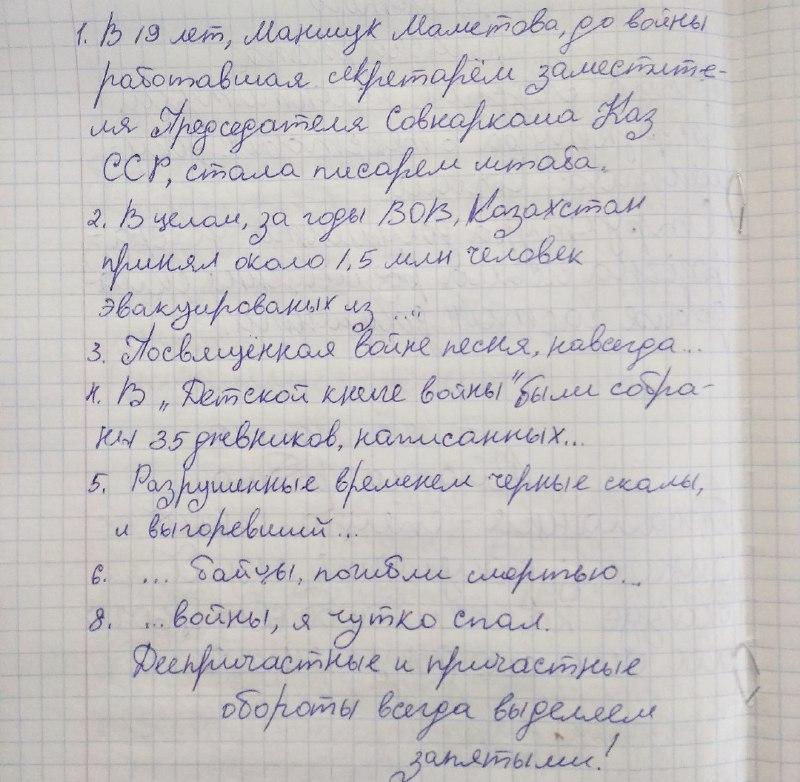 1. В 19 лет, Маншук Маметова, до войны
работавшая секретарём заместите-
ля Председателя Совнаркома Каз
ССР, стала писарем штаба.
2. В целом, за годы ВОВ, Казахстан
принял около 1,5 млн человек
эвакуированых из ...
3. Посвящённая войне песня, навсегда...
4. В „Детской книге войны" были собра-
ны 35 дневников, написанных...
5. Разрушенные временем черные скалы,
и выгоревший...
6. ... байцы, погибли смертью...
8. ... войны, я чутко спал.
Деепричастные и причастные
обороты всегда выделяем
запятыми!